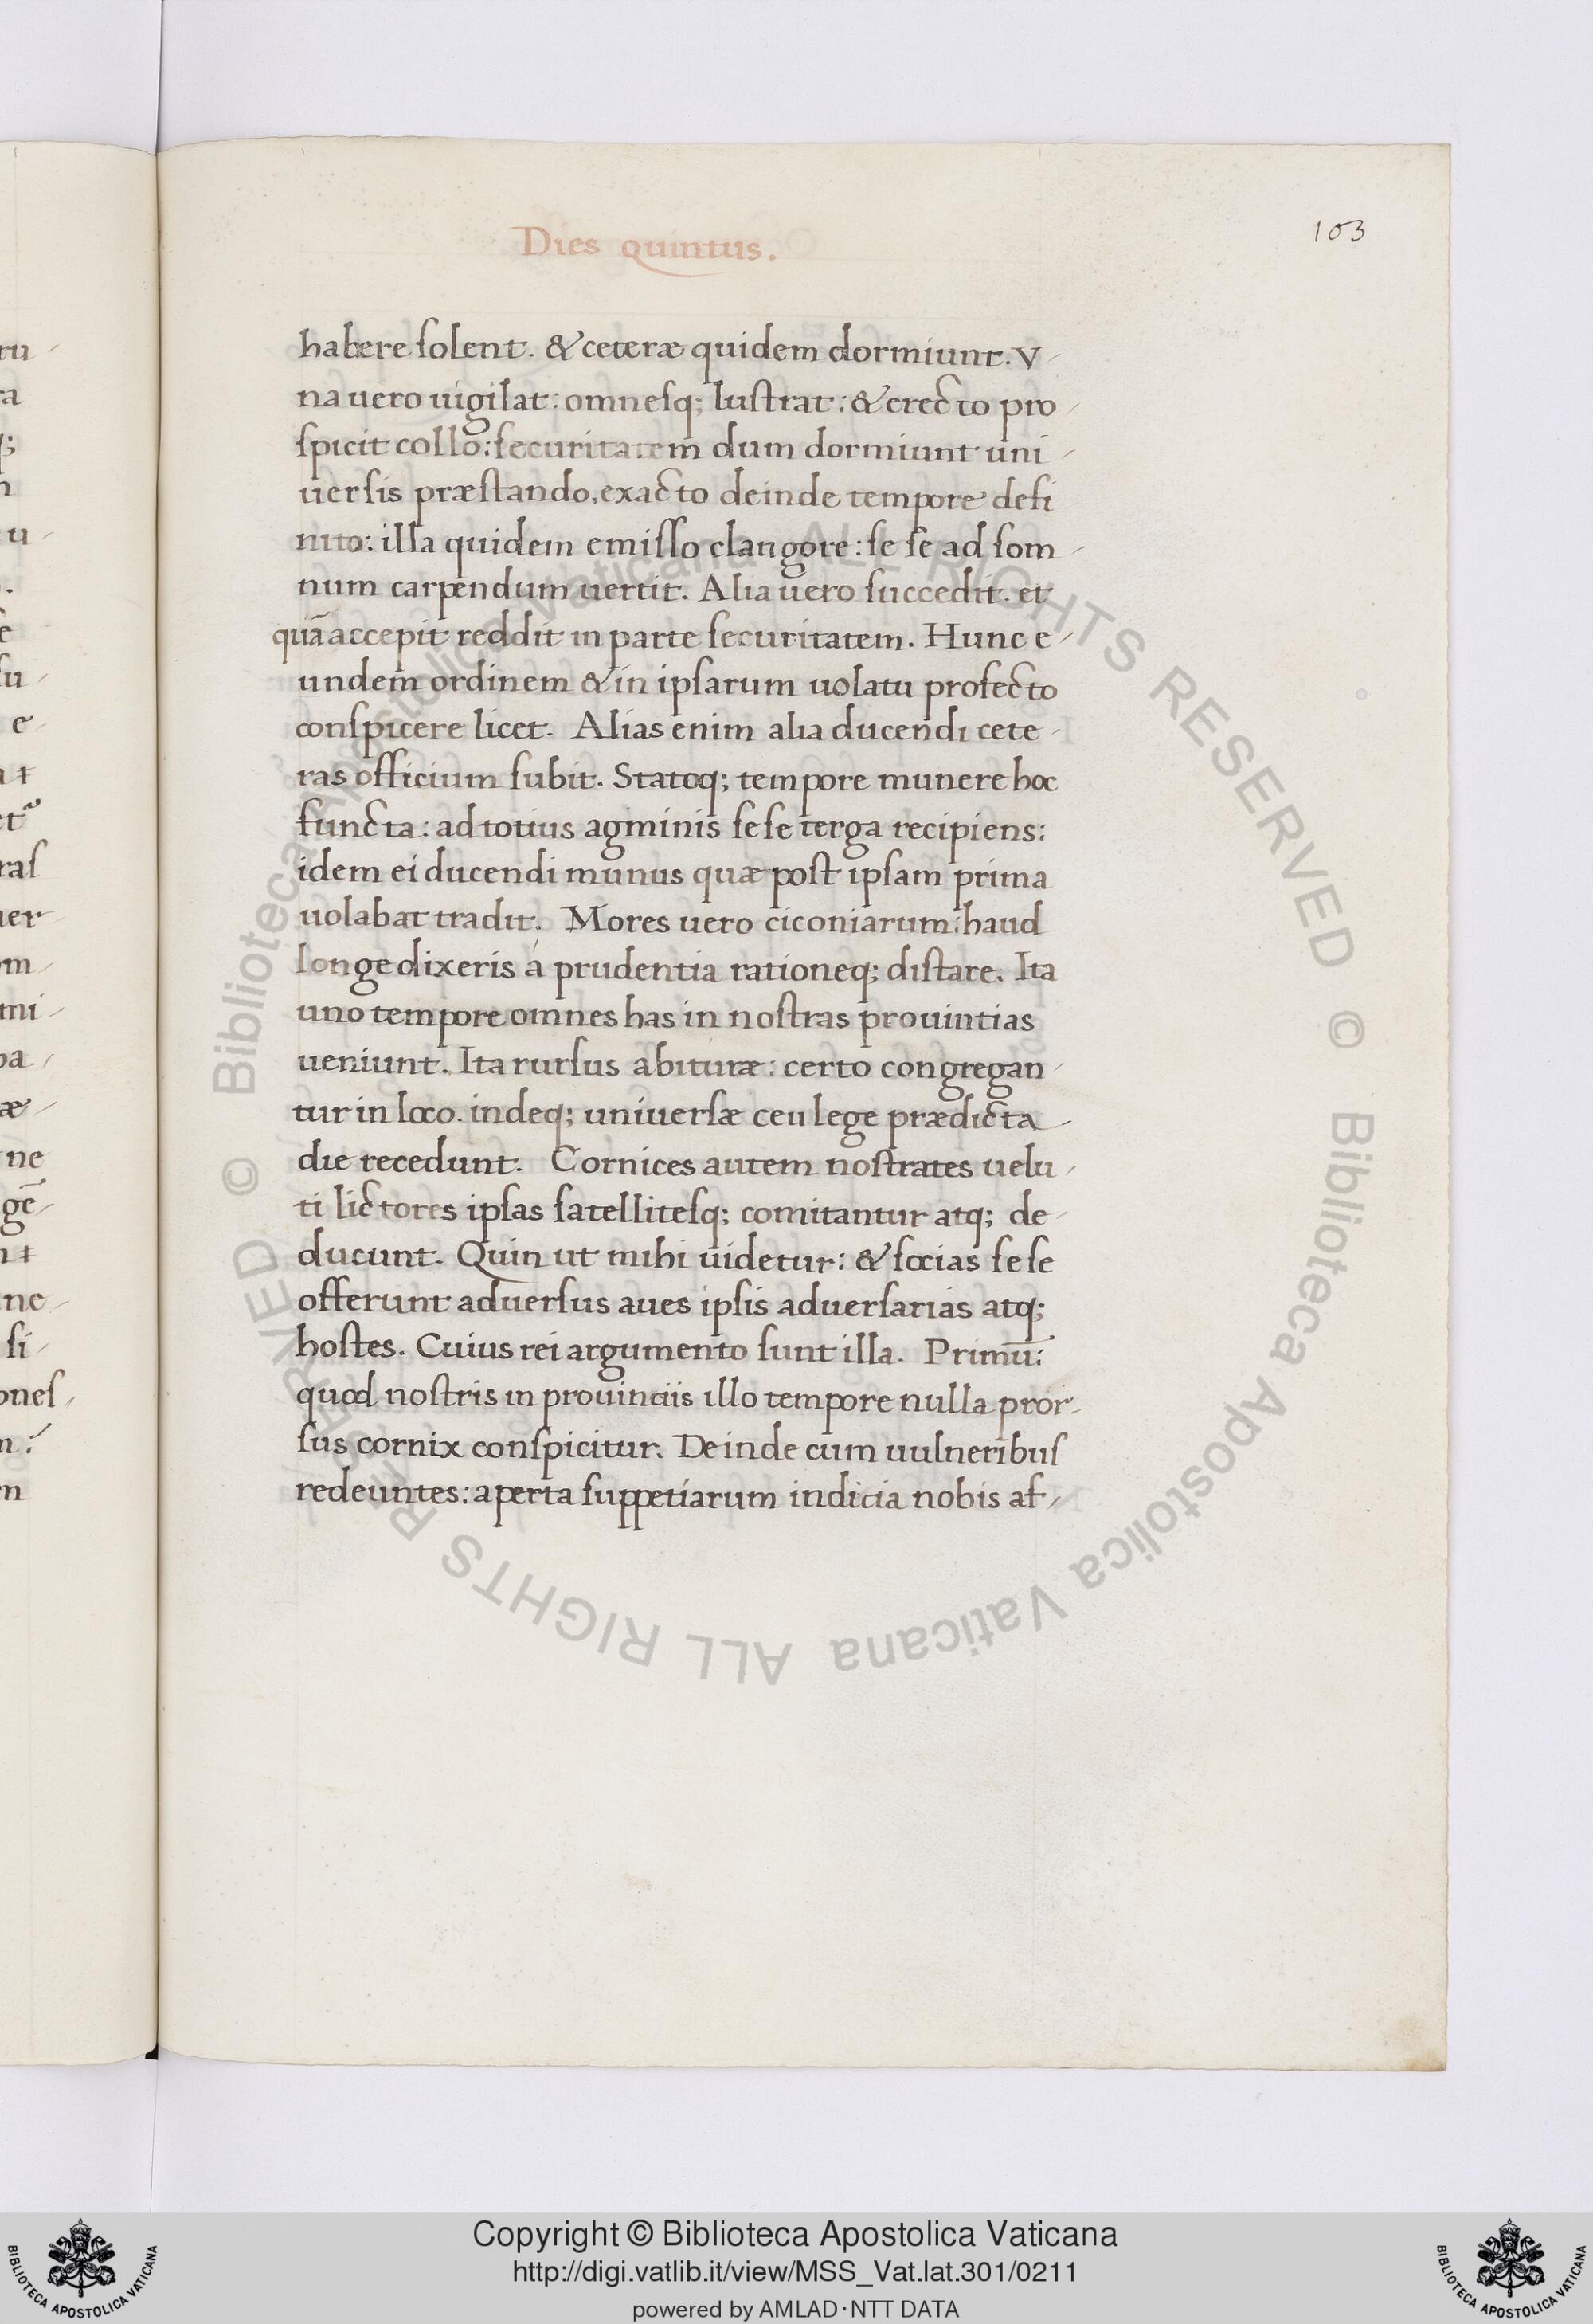 Dies quintus.
103
habere ſolent. & ceteræ quidem dormiunt. V-
na uero uigilat: omneſq; luſtrat: & erecto pro-
ſpicit collo: ſecuritatem dum dormiunt uni-
uerſis præſtando. exacto deinde tempore defi
nito: illa quidem emiſſo clangore: ſe ſe ad ſom-
num carpendum uertit. Alia uero ſuccedit. et
quā accepit reddit in parte ſecuritatem. Hunc e-
undem ordinem & in ipſarum uolatu profecto
conſpicere licet. Alias enim alia ducendi cete-
ras officium ſubit. Statoq; tempore munere hoc
functa: ad totius agminis ſeſe terga recipiens:
idem ei ducendi munus quæ poſt ipſam prima
uolabat tradit. Mores uero ciconiarum: haud
longe dixeris á prudentia rationeq; diſtare. Ita
uno tempore omnes has in noſtras prouintias
ueniunt. Ita rurſus abituræ: certo congregan-
tur in loco. indeq; uniuerſæ ceu lege prædicta-
die recedunt. Cornices autem noſtrates uelu-
ti lictores ipſas ſatelliteſq; comitantur atq; de-
ducunt. Quin ut mihi uidetur: & ſocias ſeſe
offerunt aduerſus aues ipſis aduerſarias atq;
hoſtes. Cuius rei argumento ſunt illa. Primū:
quod noſtris in prouinciis illo tempore nulla pror-
ſus cornix conſpicitur. Deinde cum uulneribuſ
redeuntes: aperta ſuppetiarum indicia nobis af-
© Biblioteca Apostolica Vaticana ALL RIGHTS RESERVED © Biblioteca Apostolica Vaticana ALL RIGHTS RESERVED
Copyright © Biblioteca Apostolica Vaticana
http://digi.vatlib.it/view/MSS_Vat.lat.301/0211
powered by AMLAD·NTT DATA
BIBLIOTECA APOSTOLICA VATICANA
BIBLIOTECA APOSTOLICA VATICANA